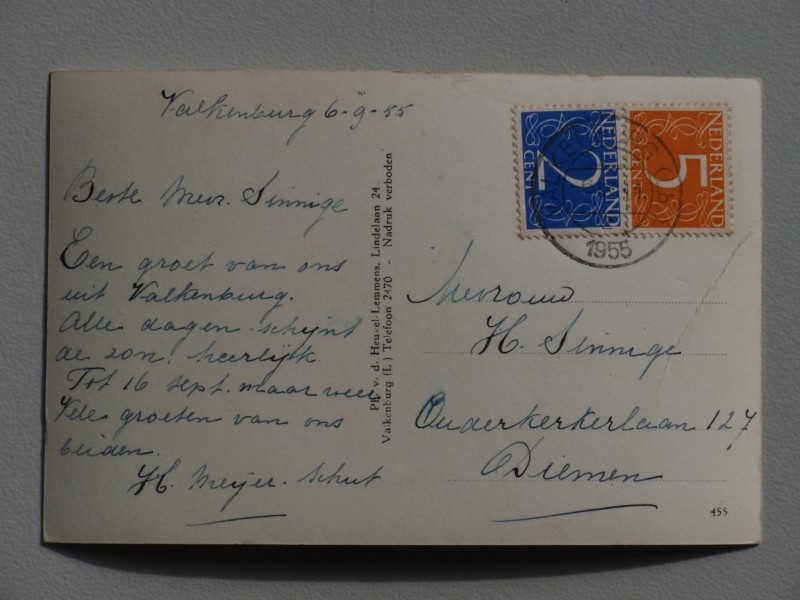 Valkenburg 6-9-55
Beste Mevr. Sinnige
Een groet van ons
uit Valkenburg.
Alle dagen schijnt
de zon! heerlijk
Tot 16 sept. maar weer
Vele groeten van ons
beiden.
H. Meijer-Schut
Ph. v. d. Heuvel-Lemmens, Lindelaan 24
Valkenburg (L) Telefoon 2470 - Nadruk verboden
NEDERLAND
2
CENT
NEDERLAND
5
CENT
1955
Mevrouw
H. Sinnige
Ouderkerkerlaan 127
Diemen
455